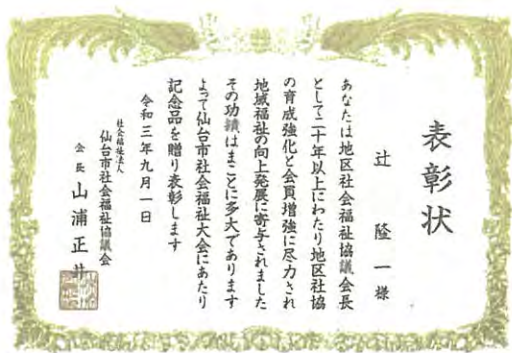 表彰状
辻 隆一様
あなたは地区社会福祉協議会長
として二十年以上にわたり地区社協
の育成強化と会員増強に尽力され
地域福祉の向上発展に寄与されました
その功績はまことに多大であります
よって仙台市社会福祉大会にあたり
記念品を贈り表彰します
令和三年九月一日
社会福祉法人
仙台市社会福祉協議会
会長 山浦正井